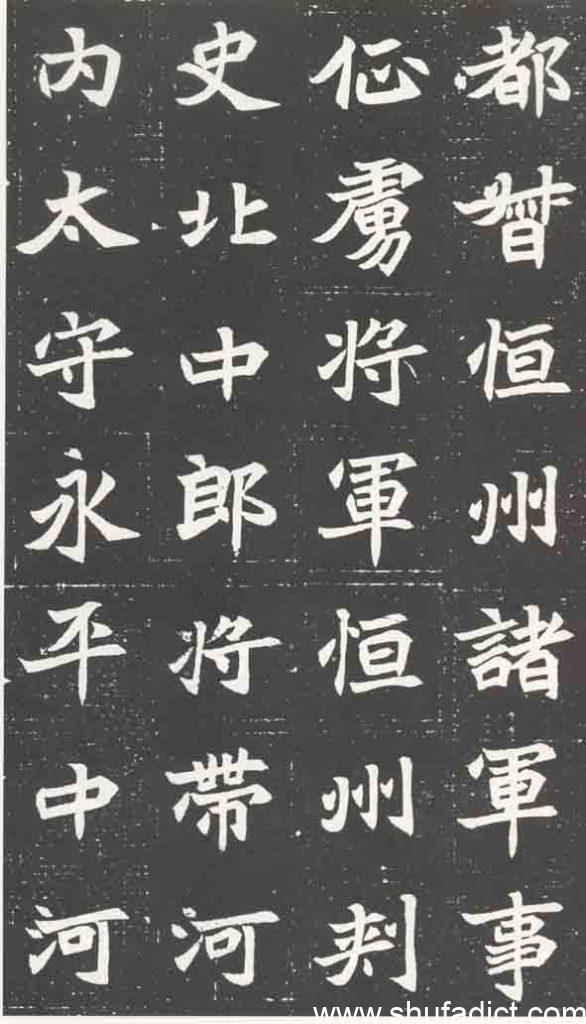 都督恒州諸軍事
征虜将軍恒州刾
史北中郎将帶河
内太守永平中河
www.shufadict.com